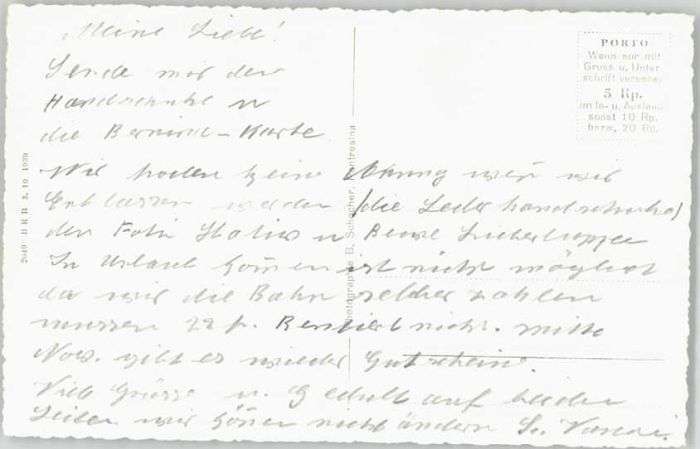 Meine Lieb!
Sende mir die
Handschuhe u
die Bernina-Karte
Wir haben keine Ahnung wen wir
Entlassen werden (die Lederhandschuhe)
den Foto u
In Urlaub kömen ist nicht möglich
da wir die Bahn selber zahlen
müssen 22 fr. Rentiert nicht. mitte
Nov. gibt es wieder Gutscheine.
Viele Grüsse u. Geduld auf beiden
Seiten wir können nicht ändern
PORTO
Wenn nur mit
Gruss u. Unter
schrift versehen
5 Rp.
im In- u. Ausland
sonst 10 Rp.
bezw. 20 Rp.
Photographie B. Schocher, Pontresina
2049 B K B 3. 10. 1939